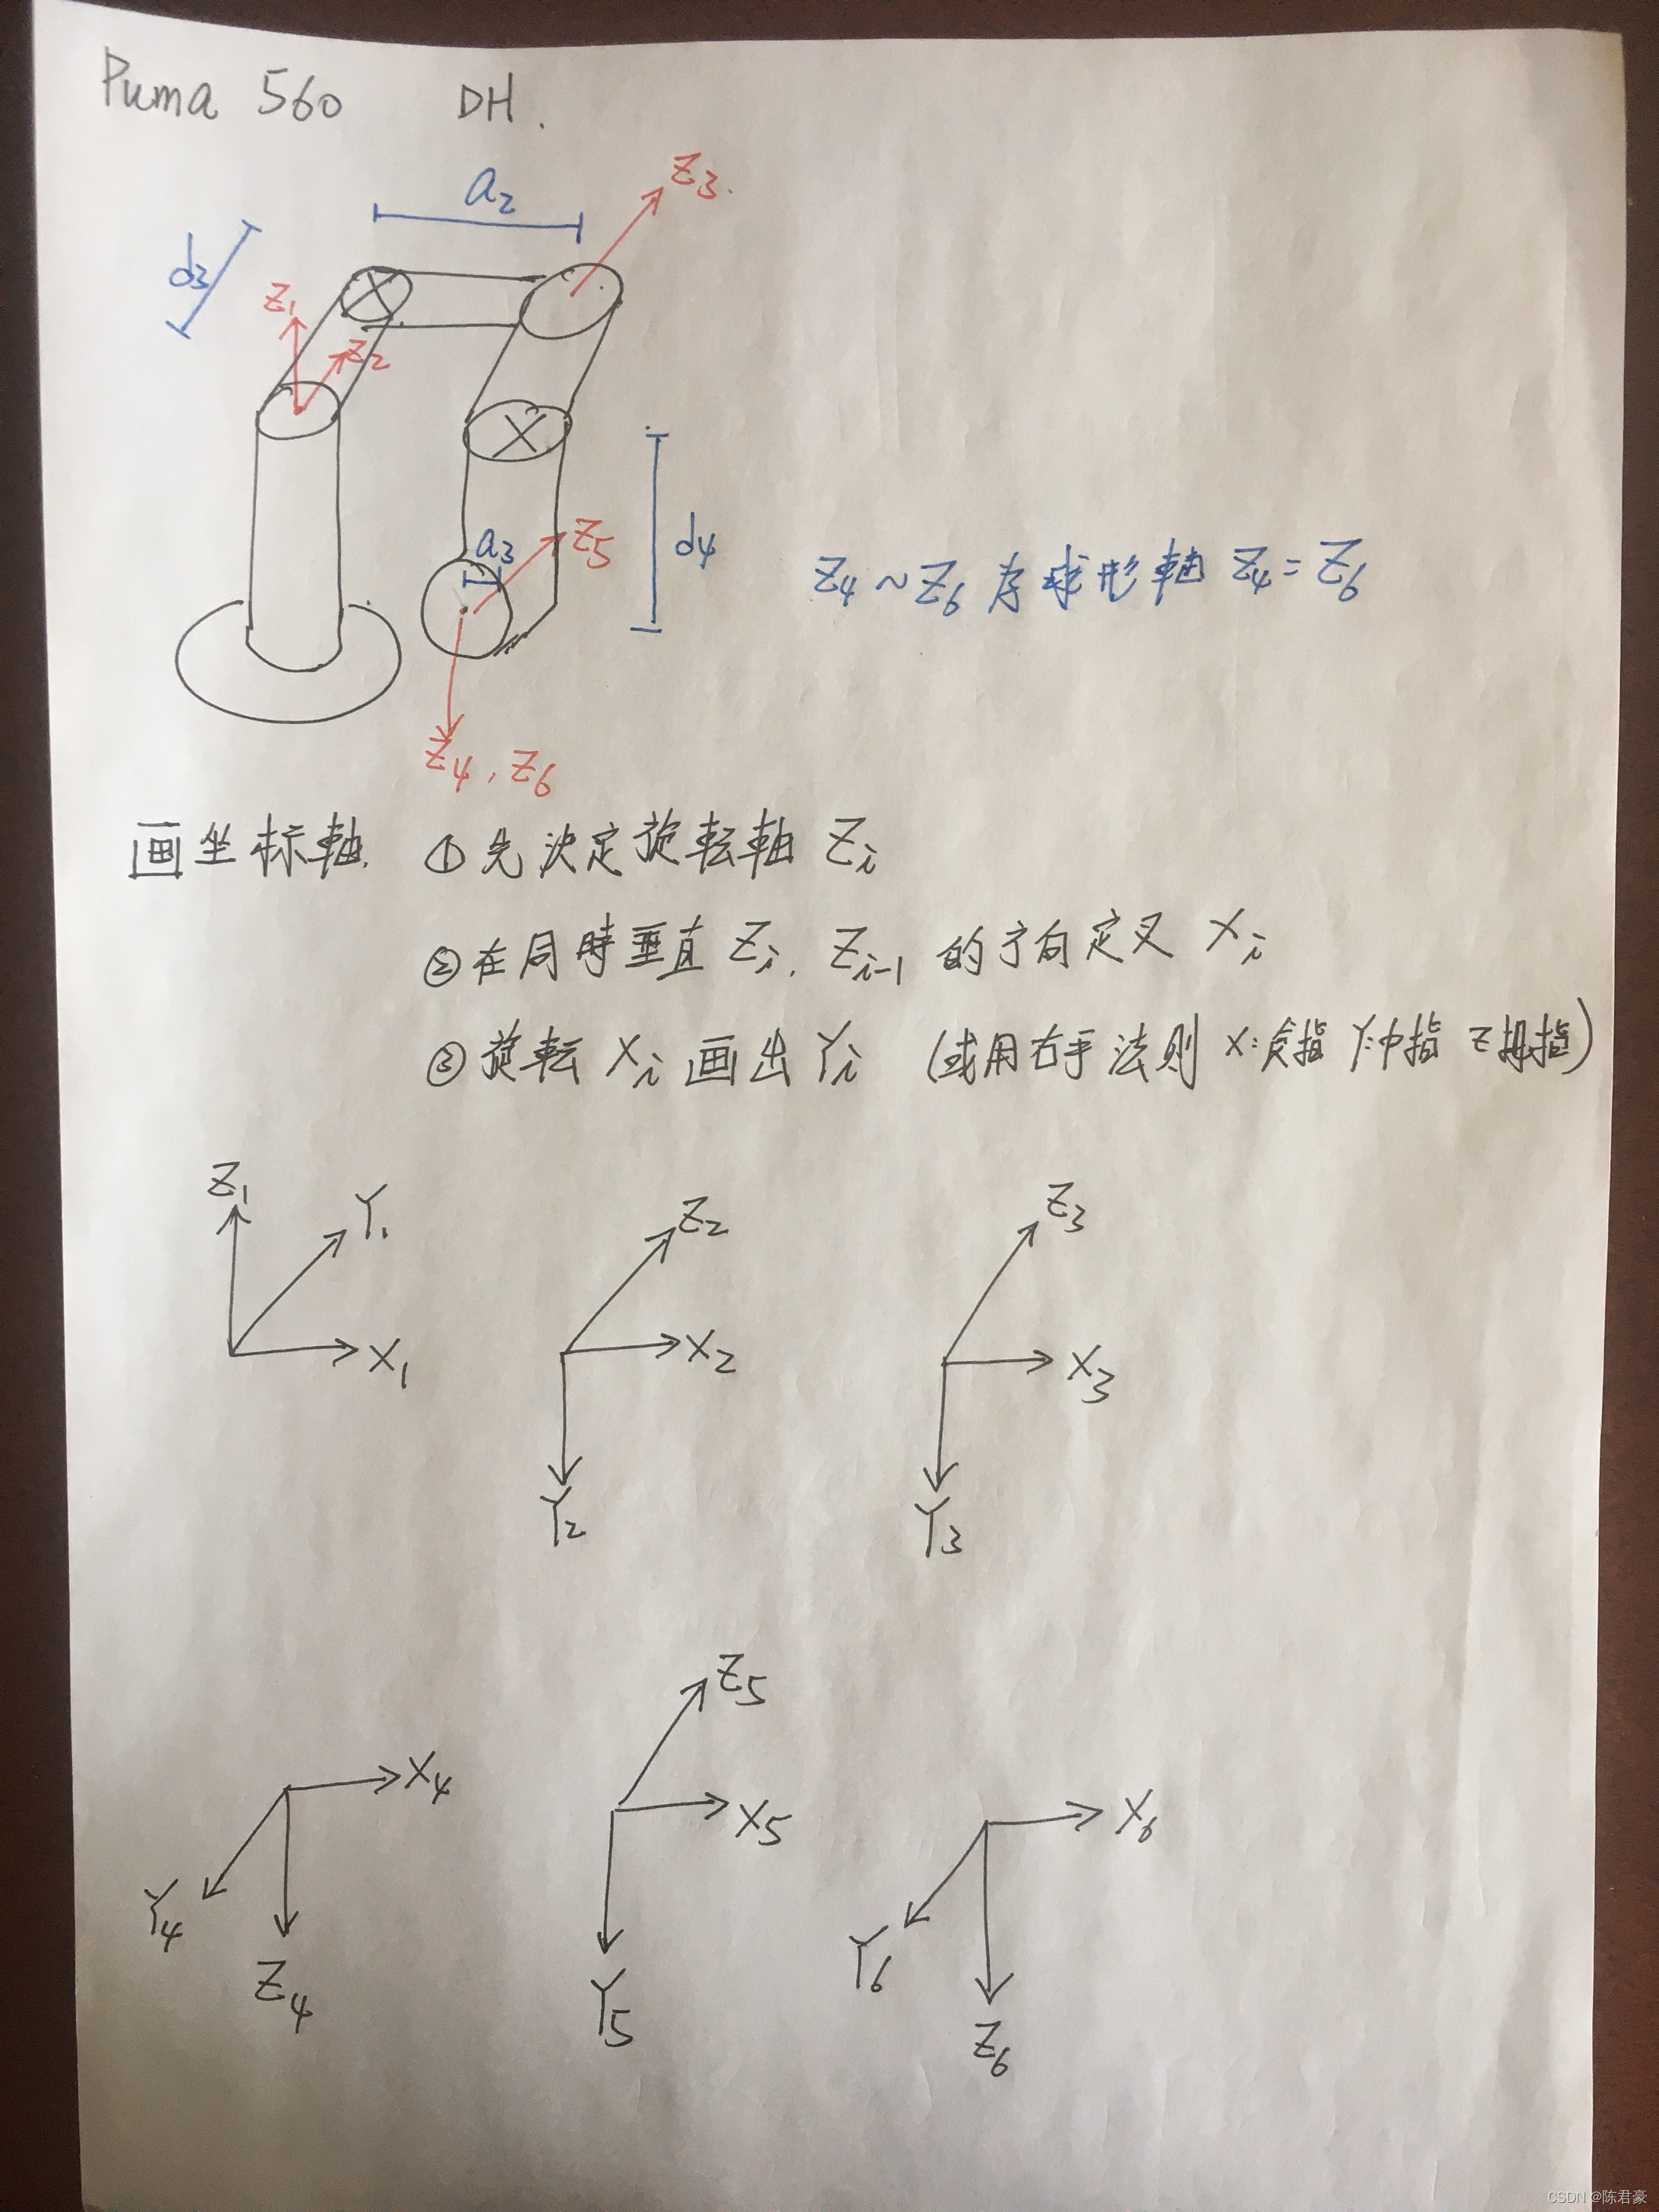 Puma 560 DH.
a2
Z3.
d3
Z1
Z2
a3
Z5
d4
Z4~Z6 为球形軸 Z4=Z6
Z4, Z6
画坐标軸. ①先决定旋転軸 Zi
②在同時垂直 Zi, Zi-1 的方向定义 Xi
③旋転 Xi 画出 Yi (或用右手法则 X:食指 Y:中指 Z拇指)
Z1
Y1
X1
Z2
X2
Y2
Z3
X3
Y3
X4
Y4
Z4
Z5
X5
Y5
X6
Y6
Z6
CSDN @陈君豪